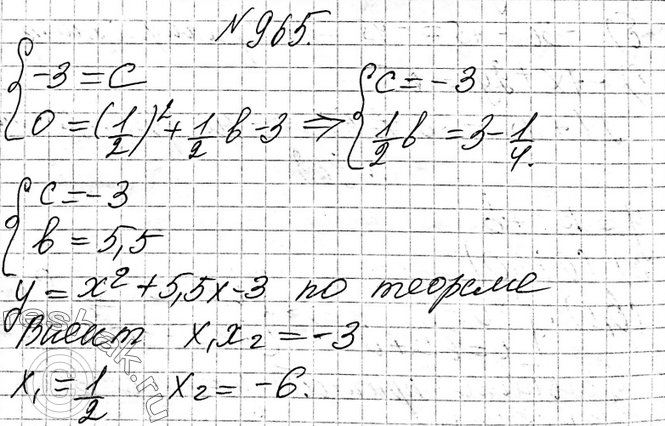 №965.
{-3=C {C=-3
0=(1/2)²+1/2 в-3 ⇒ 1/2 в=3-1/4.
{C=-3
в=5,5
y=x²+5,5x-3 по теореме
Виета x₁x₂=-3
x₁=1/2 x₂=-6.